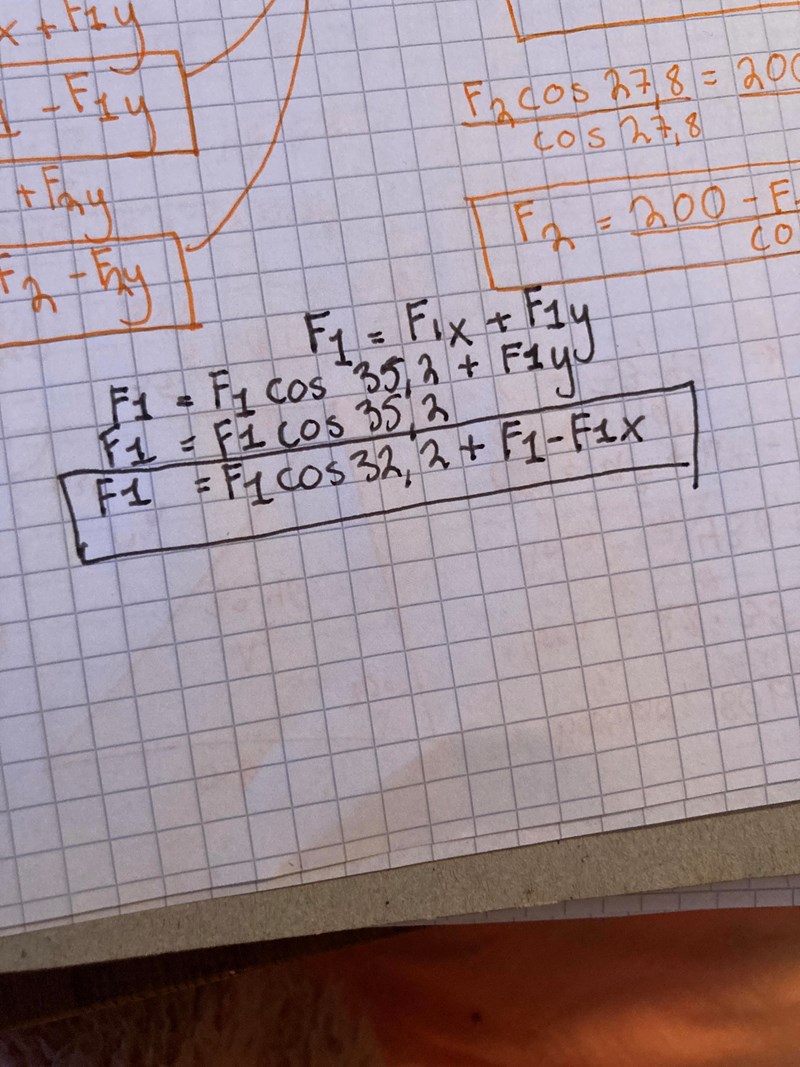 x + F1y
1 - F1y
+ F2y
F2 - F2y
F2 cos 27,8 = 200
cos 27,8
F2 = 200 - F
co
F1 = F1x + F1y
F1 = F1 cos 35,2 + F1y
F1 = F1 cos 35,2
F1 = F1 cos 32,2 + F1 - F1x